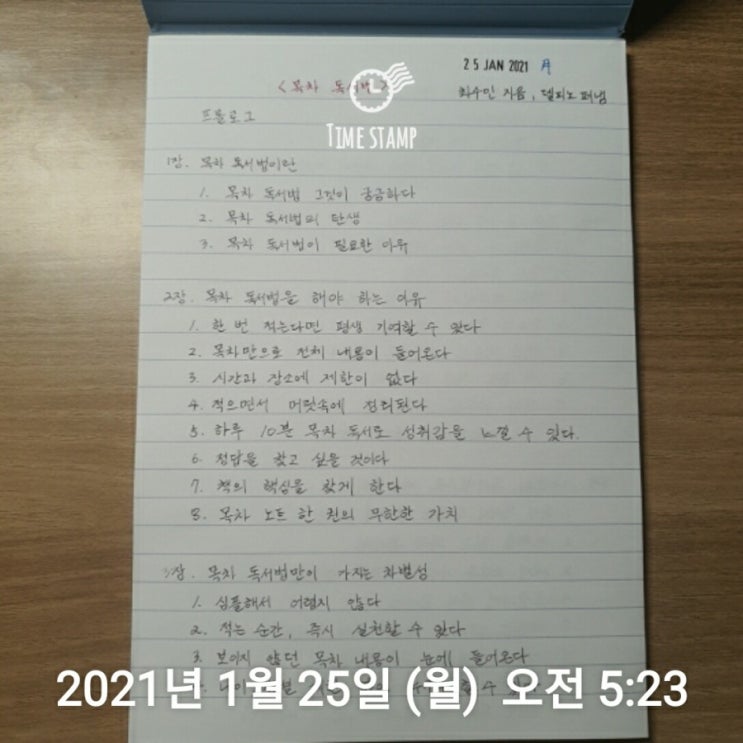 25 JAN 2021 月
<목차 독서법>
최수민 지음, 델피노 펴냄
프롤로그
TIME STAMP
1장. 목차 독서법이란
1. 목차 독서법 그것이 궁금하다
2. 목차 독서법의 탄생
3. 목차 독서법이 필요한 이유
2장. 목차 독서법을 해야 하는 이유
1. 한 번 적는다면 평생 기억할 수 있다
2. 목차만으로 전체 내용이 들어온다
3. 시간과 장소에 제한이 없다
4. 적으면서 머릿속에 정리된다
5. 하루 10분 목차 독서로 성취감을 느낄 수 있다.
6. 정답을 찾고 싶을 것이다
7. 책의 핵심을 찾게 한다
8. 목차 노트 한 권의 무한한 가치
3장. 목차 독서법만이 가지는 차별성
1. 심플해서 어렵지 않다
2. 적는 순간, 즉시 실천할 수 있다
3. 보이지 않던 목차 내용이 눈에 들어온다
2021년 1월 25일 (월) 오전 5:23